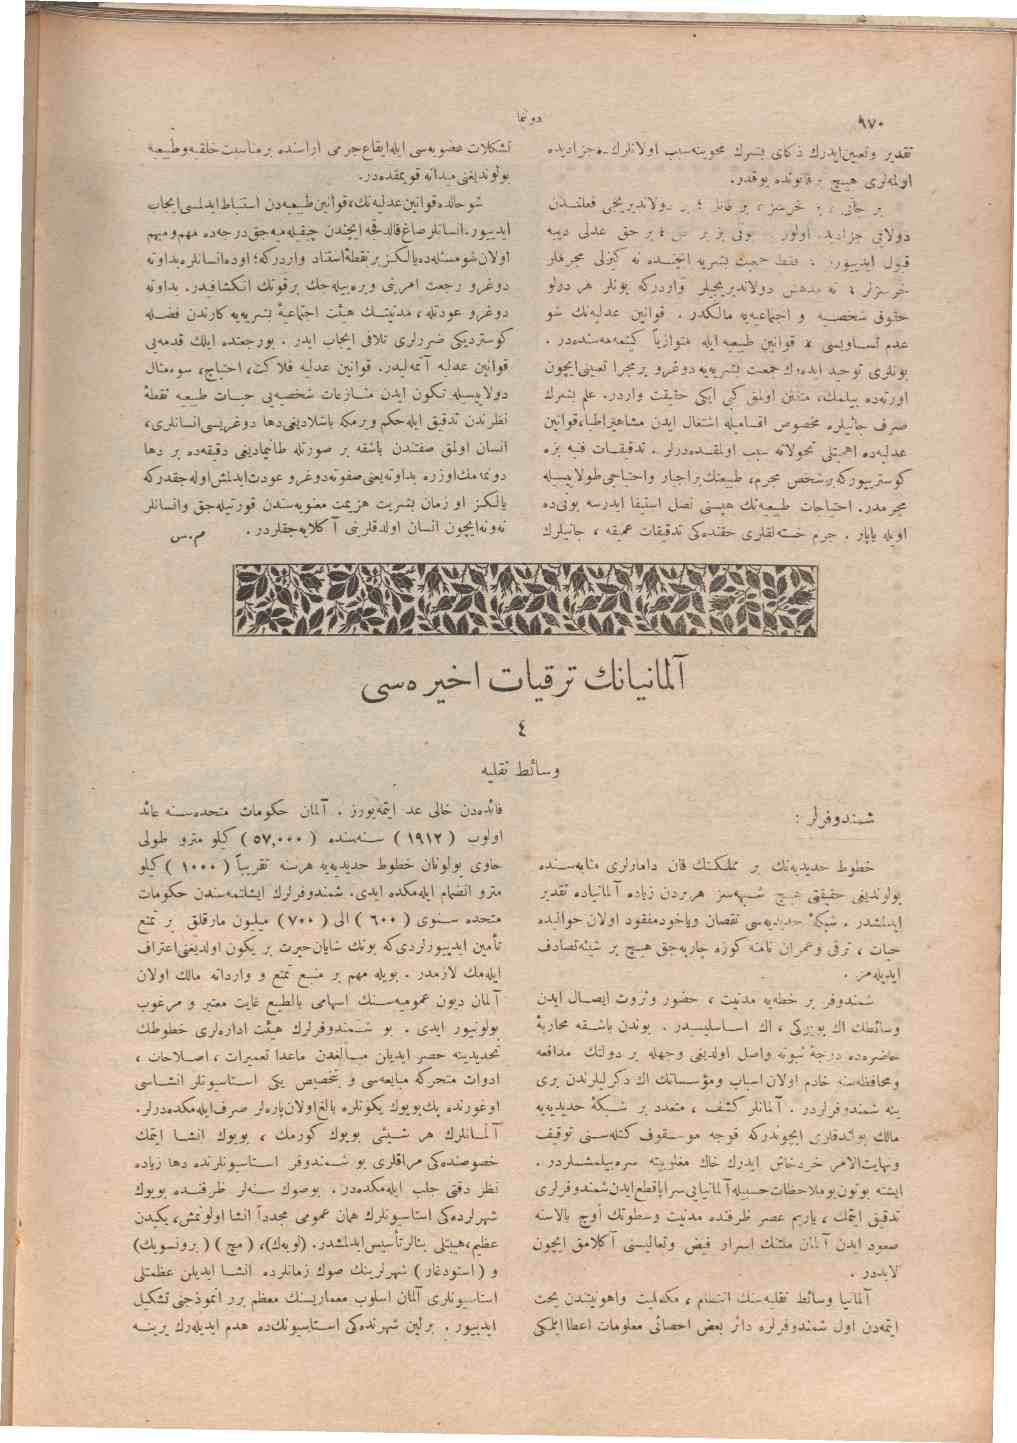 ٩٧٠
دونما
تقدير وتعيين ايدرك ذكای بشرك محوينه سبب اولانلرك ده جزاديده
اولمه‌لری هيچ بر قانونده يوقدر.
بر جانی ، بر خرسز ، بر قاتل ؛ بر دولانديريجی فعلنــدن
دولايی جزاديده اولور بر حق عدلی دييه
قبول ايدييورز ؛ فقط جمعيت بشريه ايچنــده نه كيزلی مجرملر
خرسزلر ؛ نه مدهش دولانديريجيلر واردركه بونلر هر دولو
حقوق شخصــيه و اجتماعيه‌يه مالكدر . قوانين عدليه‌نك شو
عدم تســاويسی قوانين طبيعيه ايله متوازياً كيتمه‌مه‌سنده‌در .
بونلری توحيد ايده‌رك جمعيت بشريه‌يه دوغرو بر مجرا تعيينی ايچون
اورته‌ده بيلمك، متفنن اولمق كبی ايكی حقيقت واردر. علم بشرك
صرف جانيلره مخصوص اقساميله اشتغال ايدن مشاهير اطبا، قوانين
عدليه‌ده اهميتلی تحولاته سبب اولمقــده‌درلر . تدقيقــات فنيه بزه
كوسترييوركه بر شخص مجرم، طبيعتك بر اجبار واحتياجی طولاييسيله
مجرمدر. احتياجات طبيعيه‌نك هپسنی نصل استيفا ايدرسه بونی ده
اويله ياپار . جرم خسته‌لقلری حقنده‌كی تدقيقات عميقه ، جانيلرك
تشكلات عضويه‌سی ايله ايقاع جرمی اراسنده بر مناسبت خلقيه وطبيعيه
بولونديغنی ميدانه قويمقده‌در.
شو حالده قوانين عدليه‌نك، قوانين طبيعيه‌دن استنباط ايدلمسی ايجاب
ايدييور. انسانلر صاغ قالدقجه ايچندن چيقيله‌ميه‌جق درجه‌ده مهم و مبهم
اولان شو مسئله‌ده يالكز بر نقطۀ استناد واردركه؛ اوده انسانلره بداوته
دوغرو رجعت امرينی ويره بيله‌جك برقوتك انكشافيدر. بداوته
دوغرو عودتله ، مدنيتــك هيئت اجتماعيۀ بشريه‌يه كارندن فضــله
كوسترديكی ضررلری تلافی ايجاب ايدر . بو رجعتده ايلك قدمه‌يی
قوانين عدليه آتمه‌ليدر. قوانين عدليه فلاكت، احتياج، سوء مثال
دولاييسيله تكون ايدن منــازعات شخصيه‌يی حيــات طبيعيه نقطۀ
نظرندن تدقيق ايله حكم ويرمكه باشلاديغی دها دوغريسی انسانلری،
انسان اولمق صفتندن باشقه بر صورتله طانيماديغی دقيقه‌ده بر دها
دونمه‌مك اوزره بداوته يعنی صفوته دوغرو عودت ايدلمش اوله‌جقدركه
يالكز او زمان بشريت هزيمت معنويه‌سندن قورتيله‌جق وانسانلر
نه ونه ايچون انسان اولدقلرينی آكلايه‌جقلردر .
م.س
آلمانيانك ترقيات اخيره‌سی
٤
وسائط نقليه
شمندوفرلر :
خطوط حديديه‌نك بر مملكتك قان دامارلری مثابه‌ســنده
بولونديغی حقيقتی هيــچ شــبهه‌سز هر يردن زياده آلمانياده تقدير
ايدلمشدر . شبكۀ حديديه‌سی نقصان وياخود مفقود اولان حواليده
حيات ، ترقی وعمران نامنه كوزه چارپه‌جق هيــچ بر شيئه تصادف
ايديله‌مز .
شمندوفر بر خطه‌يه مدنيت ، حضور وثروت ايصــال ايدن
وسائطك اك بويوكی ، اك اســاسليسيدر . بوندن باشــقه محاربۀ
حاضره‌ده درجۀ ثبوته واصل اولديغی وجهله بر دولتك مدافعه
ومحافظه‌سنه خادم اولان اسباب ومؤسساتك اك دكرليلرندن بری
ينه شمندوفرلردر . آلمانلر كشف ، متعدد بر شــبكۀ حديديه‌يه
مالك بولندقلری ايچوندركه قوجه موسقوف كتله‌ســنی توقيف
ونهايت‌الامر خردخاش ايدرك خاك مغلوبيته سره بيلمشــلردر .
ايشته بوتون بو ملاحظات حسبيله آلمانيايی سراپا قطع ايدن شمندوفرلری
تدقيق ايتمك ، يارم عصر ظرفنده مدنيت وسطوتك اوج بالاسنه
صعود ايدن آلمان ملتنك اسرار فيض وتعاليسنی آكلامق ايچون
لابددر .
آلمانيا وسائط نقليه‌سنك انتظام ، مكمليت واهونيتندن بحث
ايتمه‌دن اول شمندوفرلره دائر بعض احصائی معلومات اعطا ايتمكی
فائده‌دن خالی عد ايتمه‌يورز . آلمان حكومات متحده‌ســنه عائد
اولوب ( ١٩١٢ ) ســنه‌سنده ( ٥٧,٠٠٠ ) كيلو مترو طولی
حاوی بولونان خطوط حديديه‌يه هرسنه تقريباً ( ١٠٠٠ ) كيلو
مترو انضمام ايله‌مكده ايدی. شمندوفرلرك ايشلتمه‌سندن حكومات
متحده ســنوی ( ٦٠٠ ) الی ( ٧٠٠ ) ميليون مارقلق بر تمتع
تأمين ايدييورلردی كه بونك شايان حيرت بر يكون اولديغنی اعتراف
ايله‌مك لازمدر . بويله مهم بر منبع تمتع و وارداته مالك اولان
آلمان ديون عموميه‌ســنك اسهامی بالطبع غايت معتبر و مرغوب
بولونيور ايدی . بو شــمندوفرلرك هيئت اداره‌لری خطوطك
تحديدينه حصر ايديلن مبــالغدن ماعدا تعميرات ، اصــلاحات ،
ادوات متحركه مبايعه‌سی و بتخصيص يكی استاسيونلر انشــاسی
اوغورنده پك بويوك يكونلره بالغ اولان پاره‌لر صرف ايله‌مكده‌درلر.
آلمــانلرك هر شــيئی بويوك كورمك ، بويوك انشــا ايتمك
خصوصنده‌كی مراقلری بو شــمندوفر اســتاسيونلرنده دها زياده
نظر دقتی جلب ايله‌مكده‌در . بو صوك ســنه‌لر ظرفنــده بويوك
شهرلرده‌كی استاسيونلرك همان عمومی مجدداً انشا اولونمش، يكيدن
عظيم، هيبتلی بنالر تأسيس ايدلمشدر. (لوبه‌ك)، ( مچ ) ( برونسويك)
و ( استودغار ) شهرلرينك صوك زمانلرده انشــا ايديلن عظمتلی
استاسيونلری آلمان اسلوب معماريسنك معظم برر انموذجنی تشكيل
ايدييور . برلين شهرنده‌كی استــاسيونك‌ده هدم ايديله‌رك يرينــه